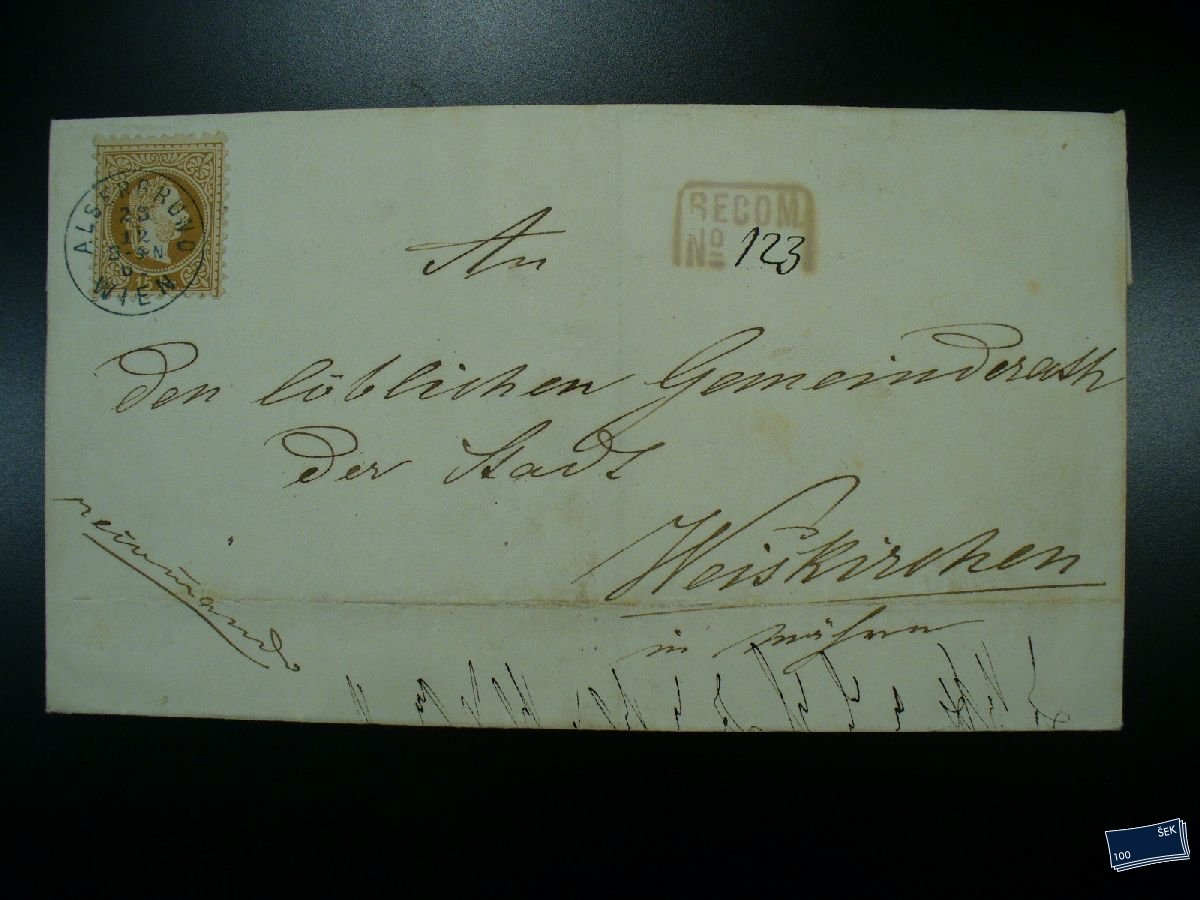 ALSERGRUND
23
12
WIEN
15
RECOM.
No 123
An
den löblichen Gemeinderath
der Stadt
Weiskirchen
in Mähren
recomando
ŠEK
100